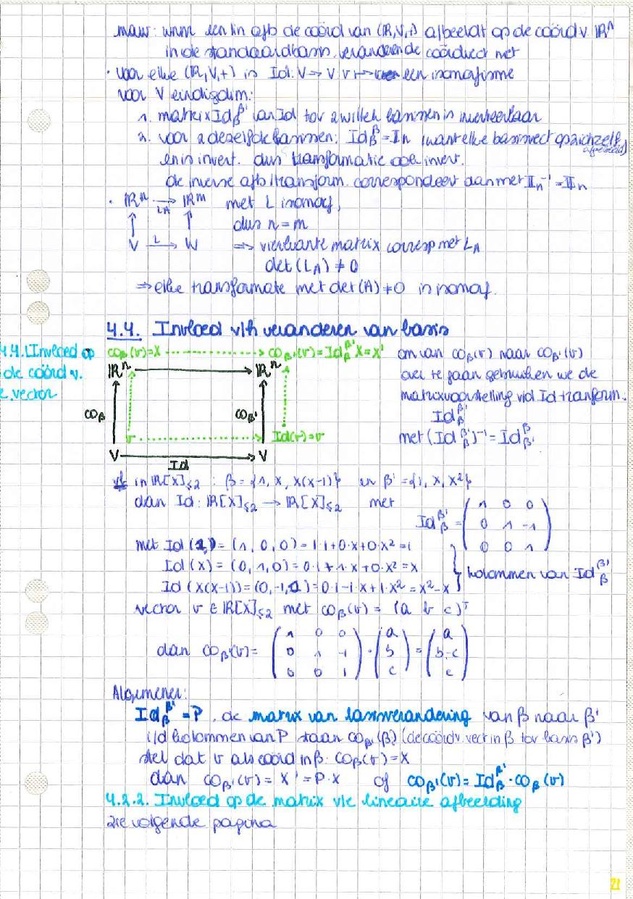 maw: wnnr een lin afb de coörd van (IR,V,+) afbeeldt op de coörd v. IRⁿ
in de standaardbasis, veranderen de coördvect niet
· voor elke (IR,V,+) is Id: V → V v ↦ v een isomorfisme
voor V eindigdim:
1. matrix Id_β^β' van Id tov 2 willek basissen is inverteerbaar
2. voor 2 dezelfde basissen: Id_β^β = In (want elke basisvect op zichzelf afbeeldt)
en is invert. dus transformatie ook invert.
de inverse afb/transform. correspondeert dan met In⁻¹ = In
· IRⁿ → IRᵐ met L isomorf,
L_A
↑ ↑ dus n = m
V →L W ⇒ vierkante matrix corresp met L_A
det(L_A) ≠ 0
⇒ elke transformatie met det(A) ≠ 0 is isomorf.
4.4. Invloed v/h veranderen van basis
4.4.1 Invloed op de coörd v. e. vector
co_β(v) = X → co_β'(v) = Id_β^β' X = X'
IRⁿ → IRⁿ
co_β ↑ co_β' ↑
v → Id(v) = v
V → V
Id
om van co_β(v) naar co_β'(v)
over te gaan gebruiken we de
matrixvoorstelling v/d Id transform.
Id_β^β'
met (Id_β^β')⁻¹ = Id_β'^β
vb in IR[X]≤2 : β = {1, X, X(X-1)} en β' = {1, X, X²}
dan Id: IR[X]≤2 → IR[X]≤2 met
Id_β^β' = ( 1 0 0
0 1 -1
0 0 1 )
met Id(1) = (1, 0, 0) = 1·1 + 0·X + 0·X² = 1
Id(X) = (0, 1, 0) = 0·1 + 1·X + 0·X² = X
Id(X(X-1)) = (0, -1, 1) = 0·1 - 1·X + 1·X² = X² - X
} kolommen van Id_β^β'
vector v ∈ IR[X]≤2 met co_β(v) = (a b c)ᵀ
dan co_β'(v) = ( 1 0 0
0 1 -1
0 0 1 ) · ( a
b
c ) = ( a
b-c
c )
Algemener:
Id_β^β' = P, de matrix van basisverandering van β naar β'
i/d kolommen van P staan co_β'(β) (de coörd v. vect in β tov basis β')
stel dat v als coörd in β: co_β(v) = X
dan co_β'(v) = X' = P·X of co_β'(v) = Id_β^β' · co_β(v)
4.2.2. Invloed op de matrix v/e lineaire afbeelding
zie volgende pagina
21